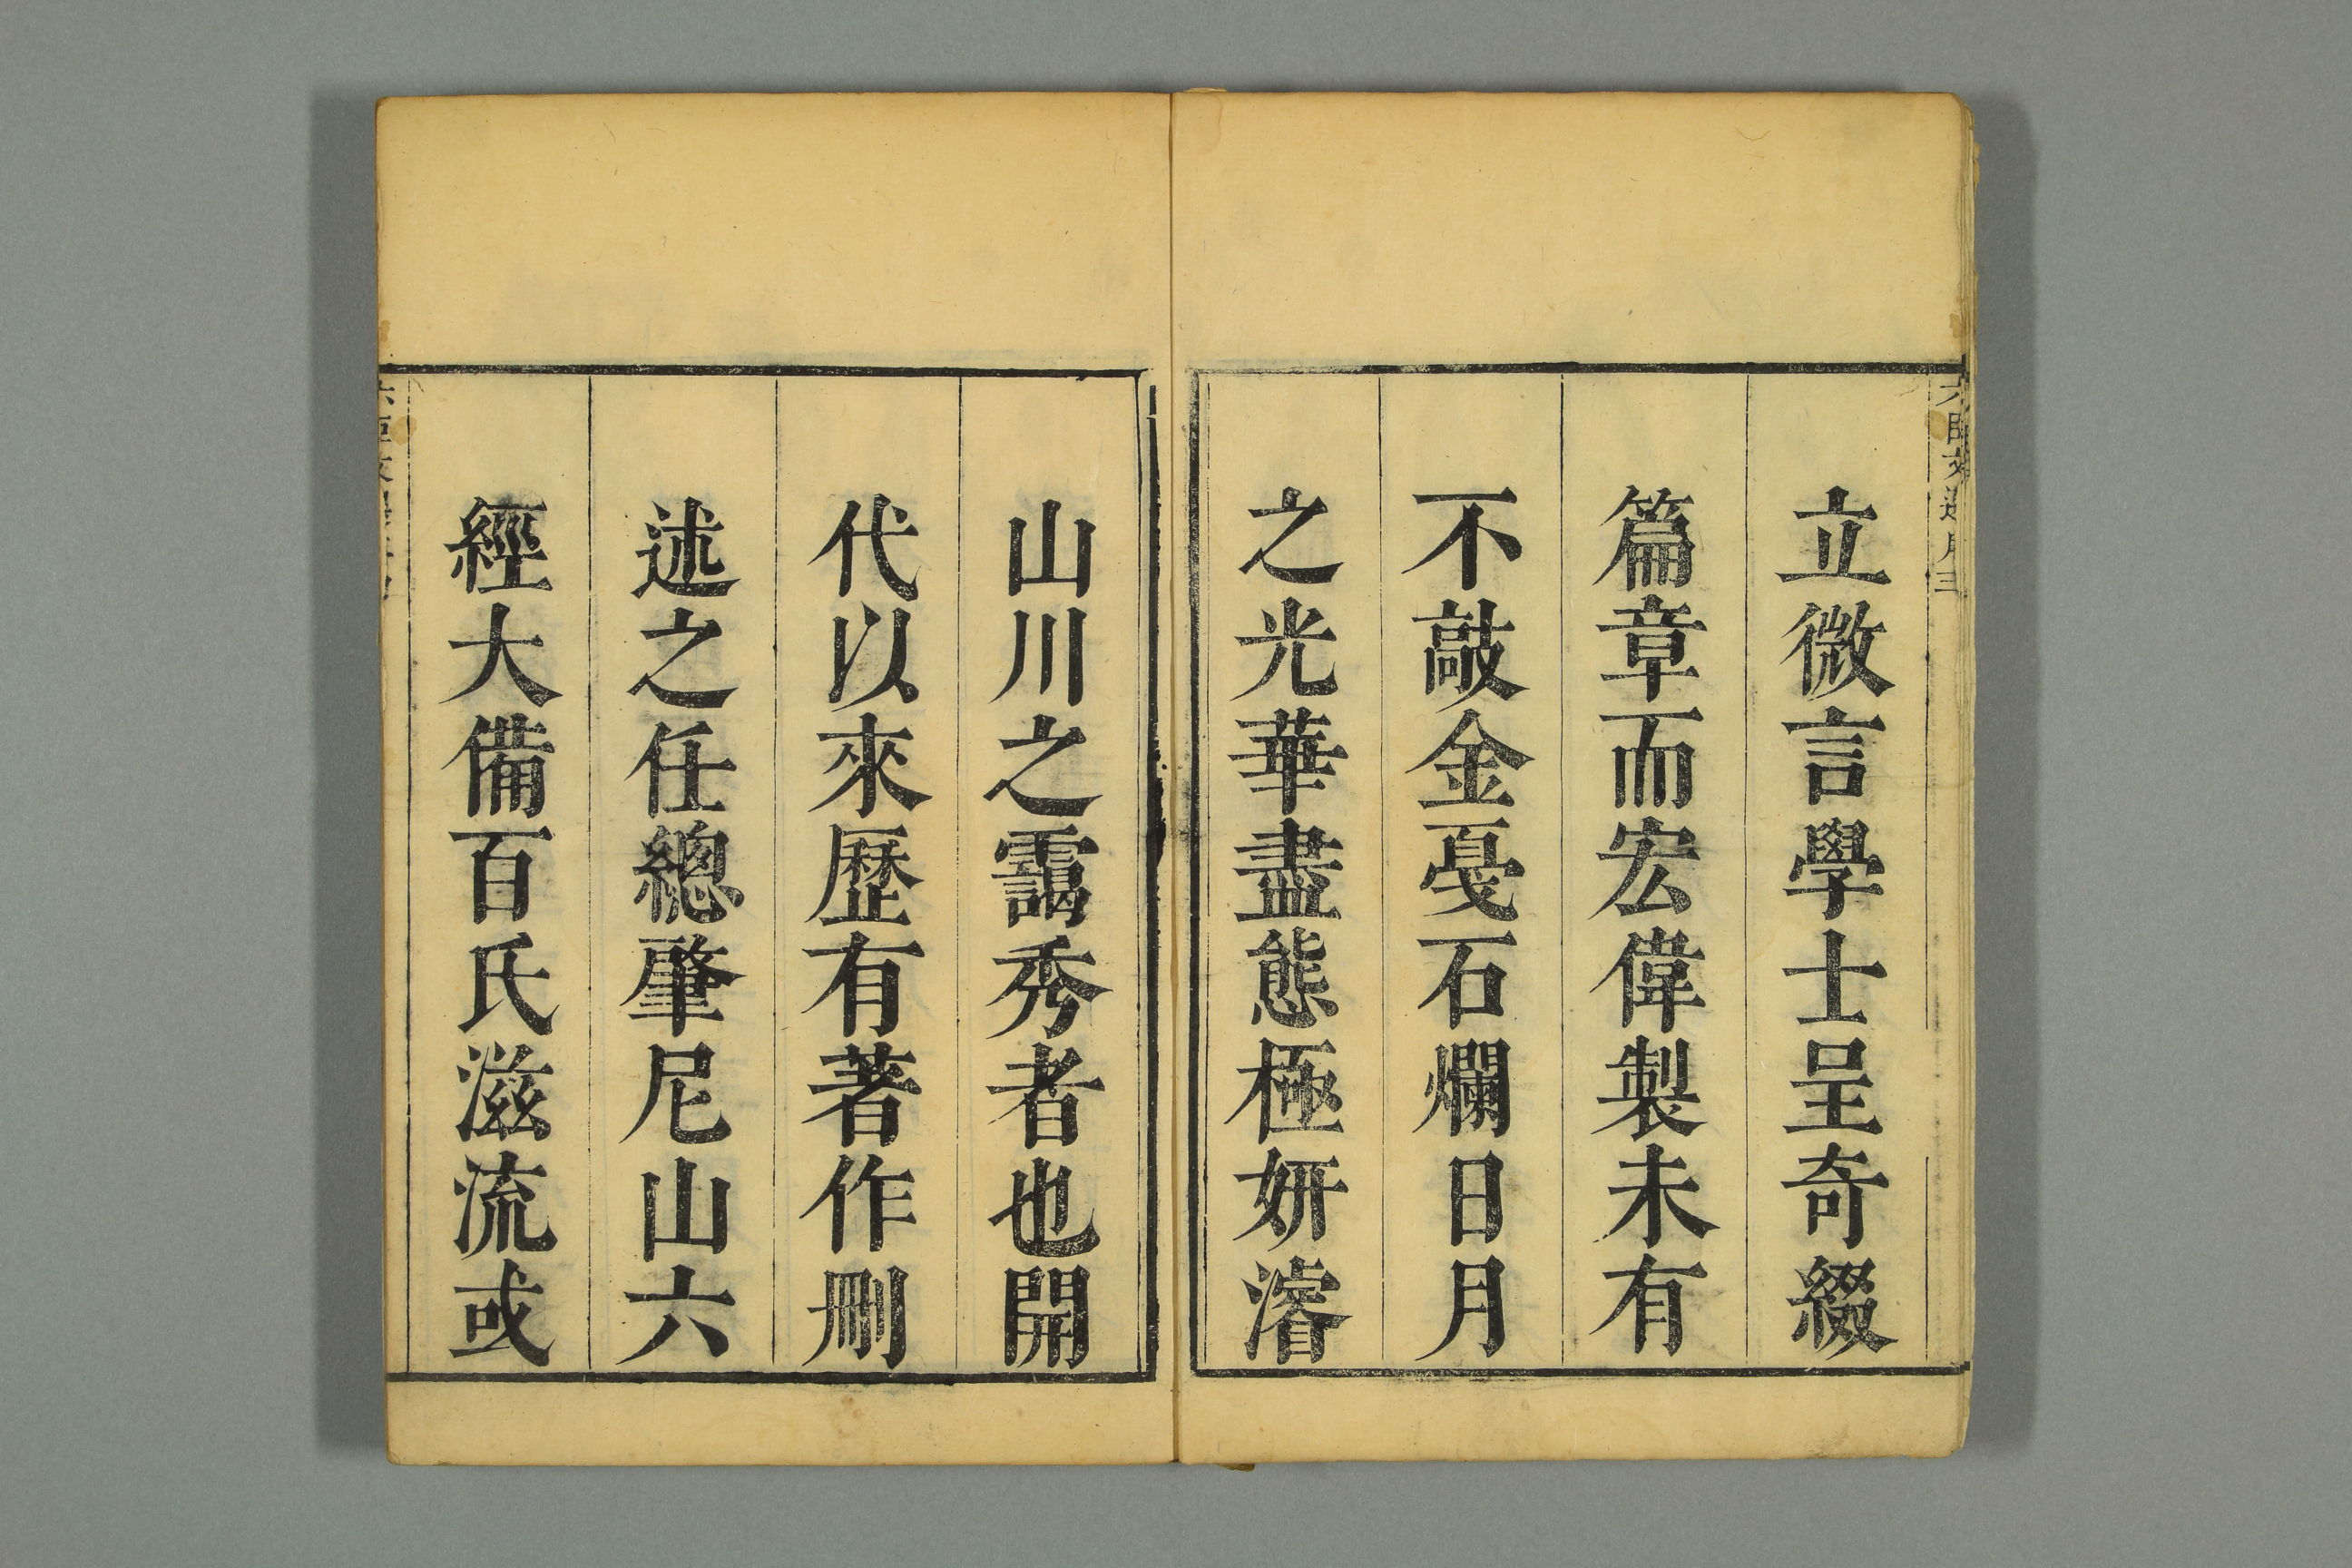 立微言學士呈奇綴
篇章而宏偉製未有
不敲金戞石爛日月
之光華盡態極妍濬
山川之靄秀者也開
代以來歷有著作刪
述之任總肇尼山六
經大備百氏滋流或